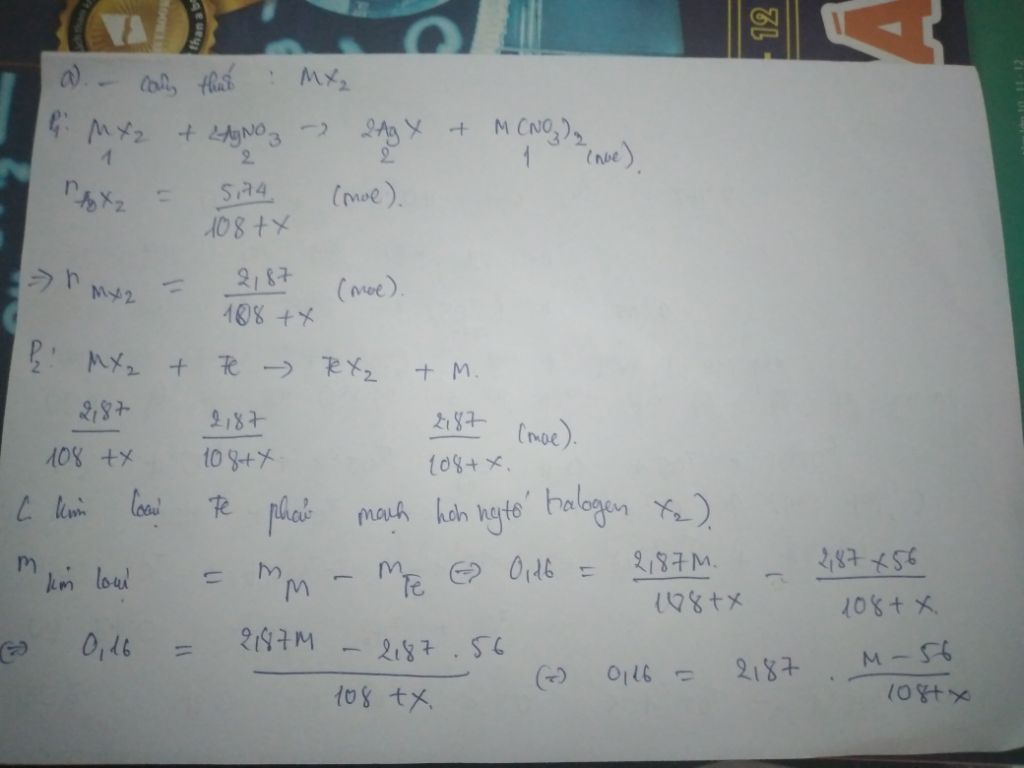 - 12
A
11.12
a). – công thức : MX2
P1: MX2 + 2AgNO3 → 2AgX + M(NO3)2
1 2 2 1 (moe).
n AgX2 = 5,74 / 108 + X (moe).
⇒ n MX2 = 2,87 / 108 + X (moe).
P2: MX2 + Fe → FeX2 + M.
2,87 / 108 + X 2,87 / 108 + X 2,87 / 108 + X. (moe).
( kim loại Fe phải mạnh hơn ngtố halogen X2).
m kim loại = mM – mFe ⇔ 0,16 = 2,87M. / 108 + X – 2,87 x 56 / 108 + X.
⇔ 0,16 = 2,87M – 2,87 . 56 / 108 + X. ⇔ 0,16 = 2,87 . M – 56 / 108 + X